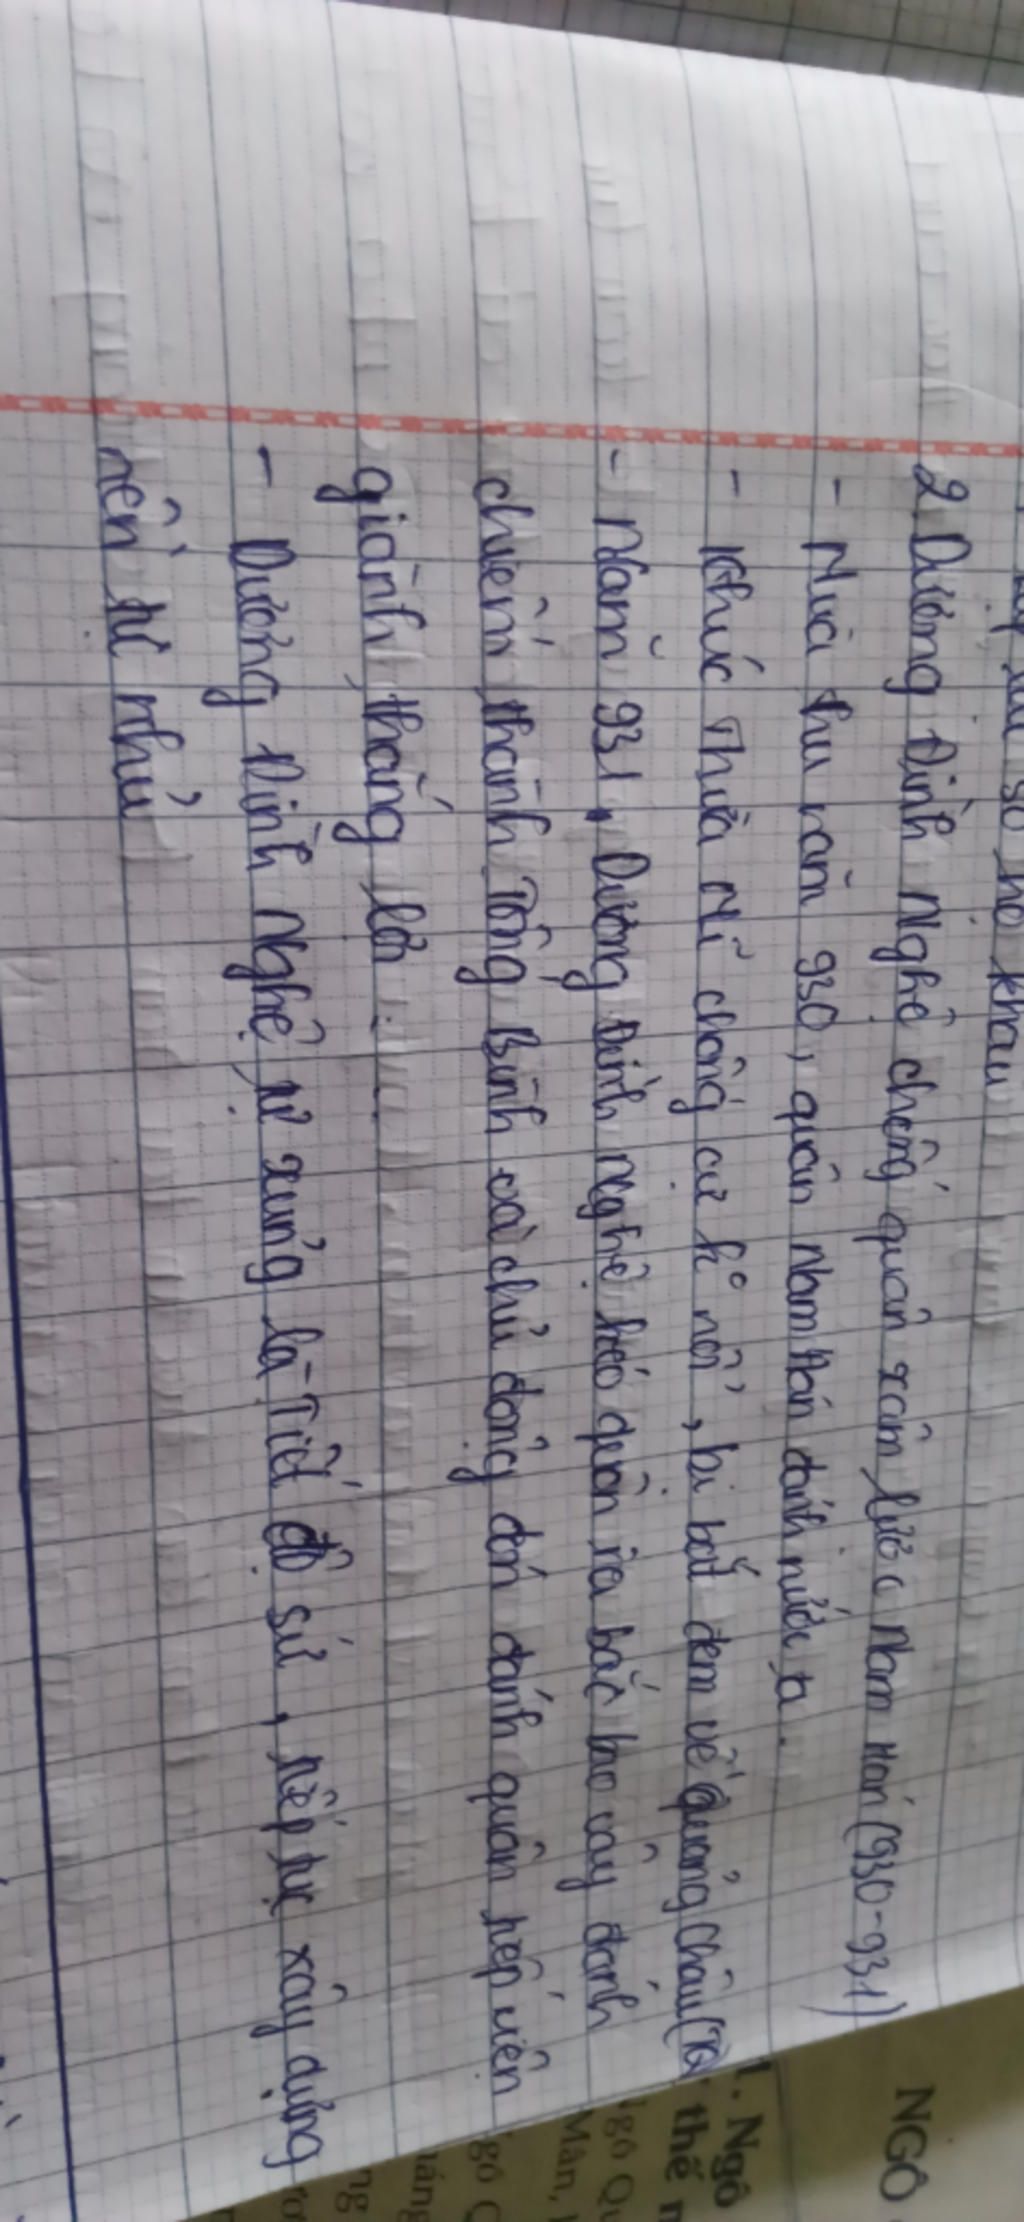 khẩu
2. Dương Đình Nghệ chống quân xâm lược Nam Hán (930-931)
- Mùa thu năm 930, quân Nam Hán đánh nước ta.
- Khúc Thừa Mĩ chống cự kº nổi, bị bắt đem về Quảng Châu (TQ
- Năm 931, Dương Đình Nghệ kéo quân ra bắc bao vây đánh
chiếm thành Tống Bình và chủ động đón đánh quân tiếp viện
giành thắng lợi
- Dương Đình Nghệ tự xưng là Tiết độ sứ, tiếp tục xây dựng
nền tự chủ
NGÔ
1. Ngô
thế
Ngô Qu
Mân,